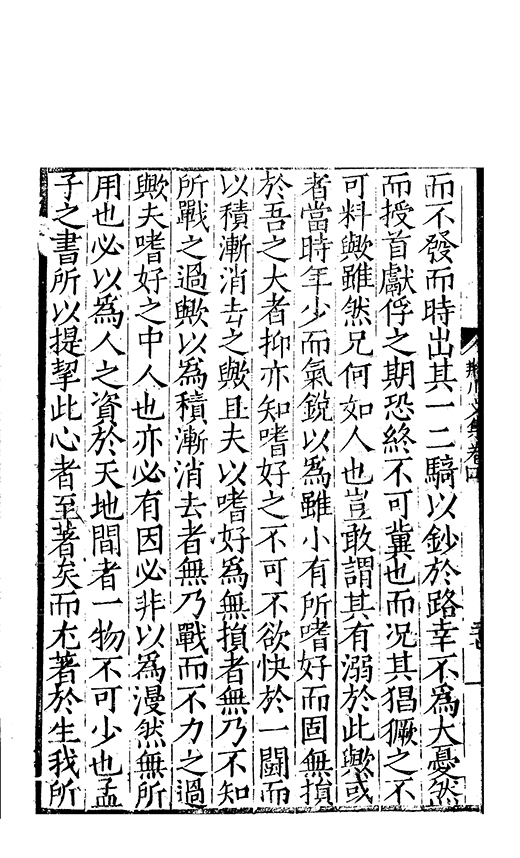 而不發而時出其一二騎以鈔於路幸不為大憂然
而授首獻俘之期恐終不可冀也而况其猖獗之不
可料歟雖然兄何如人也豈敢謂其有溺於此歟或
者當時年少而氣銳以為雖小有所嗜好而固無損
於吾之大者抑亦知嗜好之不可不欲快於一鬭而
以積漸消去之歟且夫以嗜好為無損者無乃不知
所戰之過歟以為積漸消去者無乃戰而不力之過
歟夫嗜好之中人也亦必有因必非以為漫然無所
用也必以為人之資於天地間者一物不可少也孟
子之書所以提挈此心者至著矣而尤著於生我所
荆川文集卷四